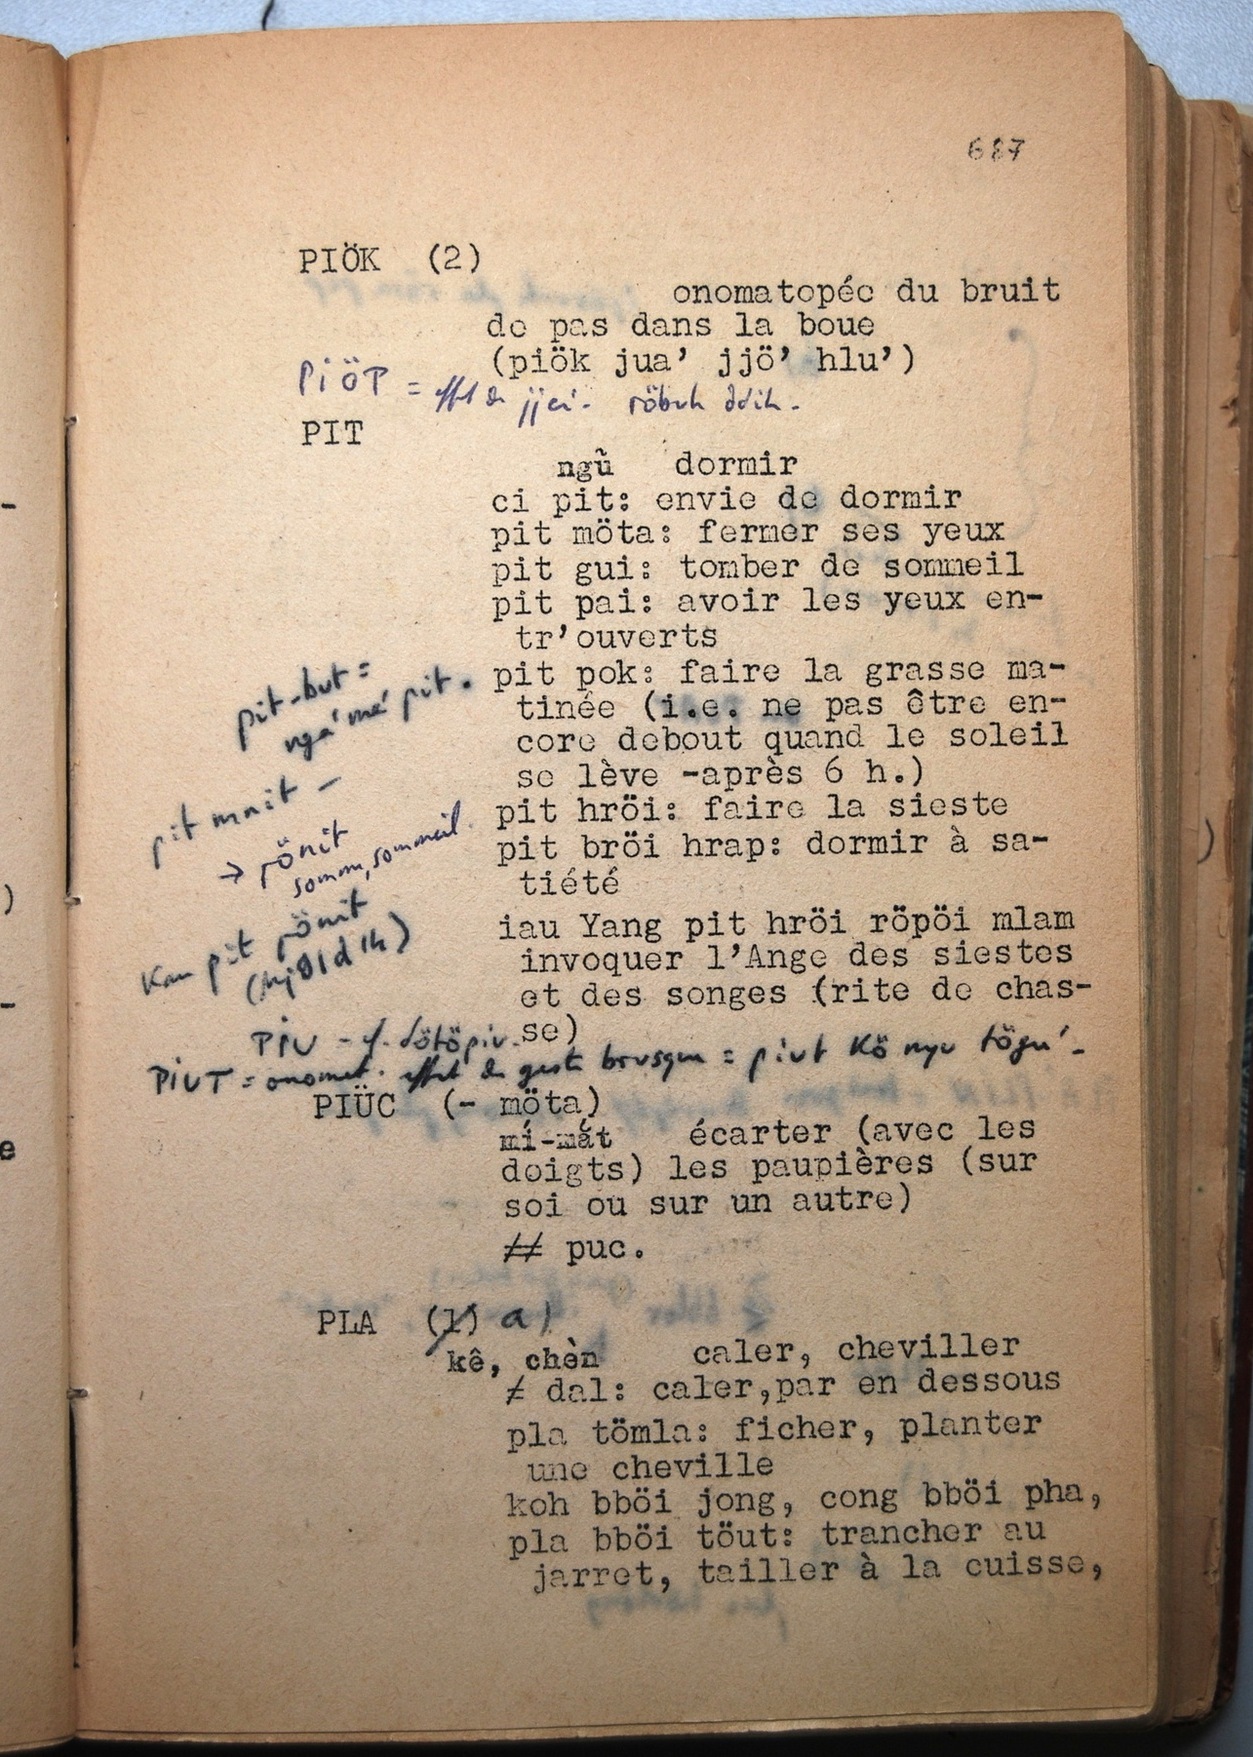 687
PIÖK (2)
onomatopée du bruit
de pas dans la boue
(piök jua' jjö' hlu')
PIÖT = effet de jjei. röbuh ddih.
PIT
ngũ dormir
ci pit: envie de dormir
pit möta: fermer ses yeux
pit gui: tomber de sommeil
pit pai: avoir les yeux en-
tr'ouverts
pit-but =
ngá mé pit.
pit pok: faire la grasse ma-
tinée (i.e. ne pas être en-
core debout quand le soleil
se lève -après 6 h.)
pit mnit -
→ rönit
somm, sommeil.
pit hröi: faire la sieste
pit bröi hrap: dormir à sa-
tiété
Kan pit rönit
iau Yang pit hröi röpöi mlam
invoquer l'Ange des siestes
et des songes (rite de chas-
se)
PIU - cf. dötöpiu.
PIUT = onomat. effet de geste brusque = piut Kö nyu tögu'-
PIÜC (- möta)
mí-mắt écarter (avec les
doigts) les paupières (sur
soi ou sur un autre)
# puc.
PLA (1) a)
kê, chèn caler, cheviller
≠ dal: caler,par en dessous
pla tömla: ficher, planter
une cheville
koh bböi jong, cong bböi pha,
pla bböi töut: trancher au
jarret, tailler à la cuisse,